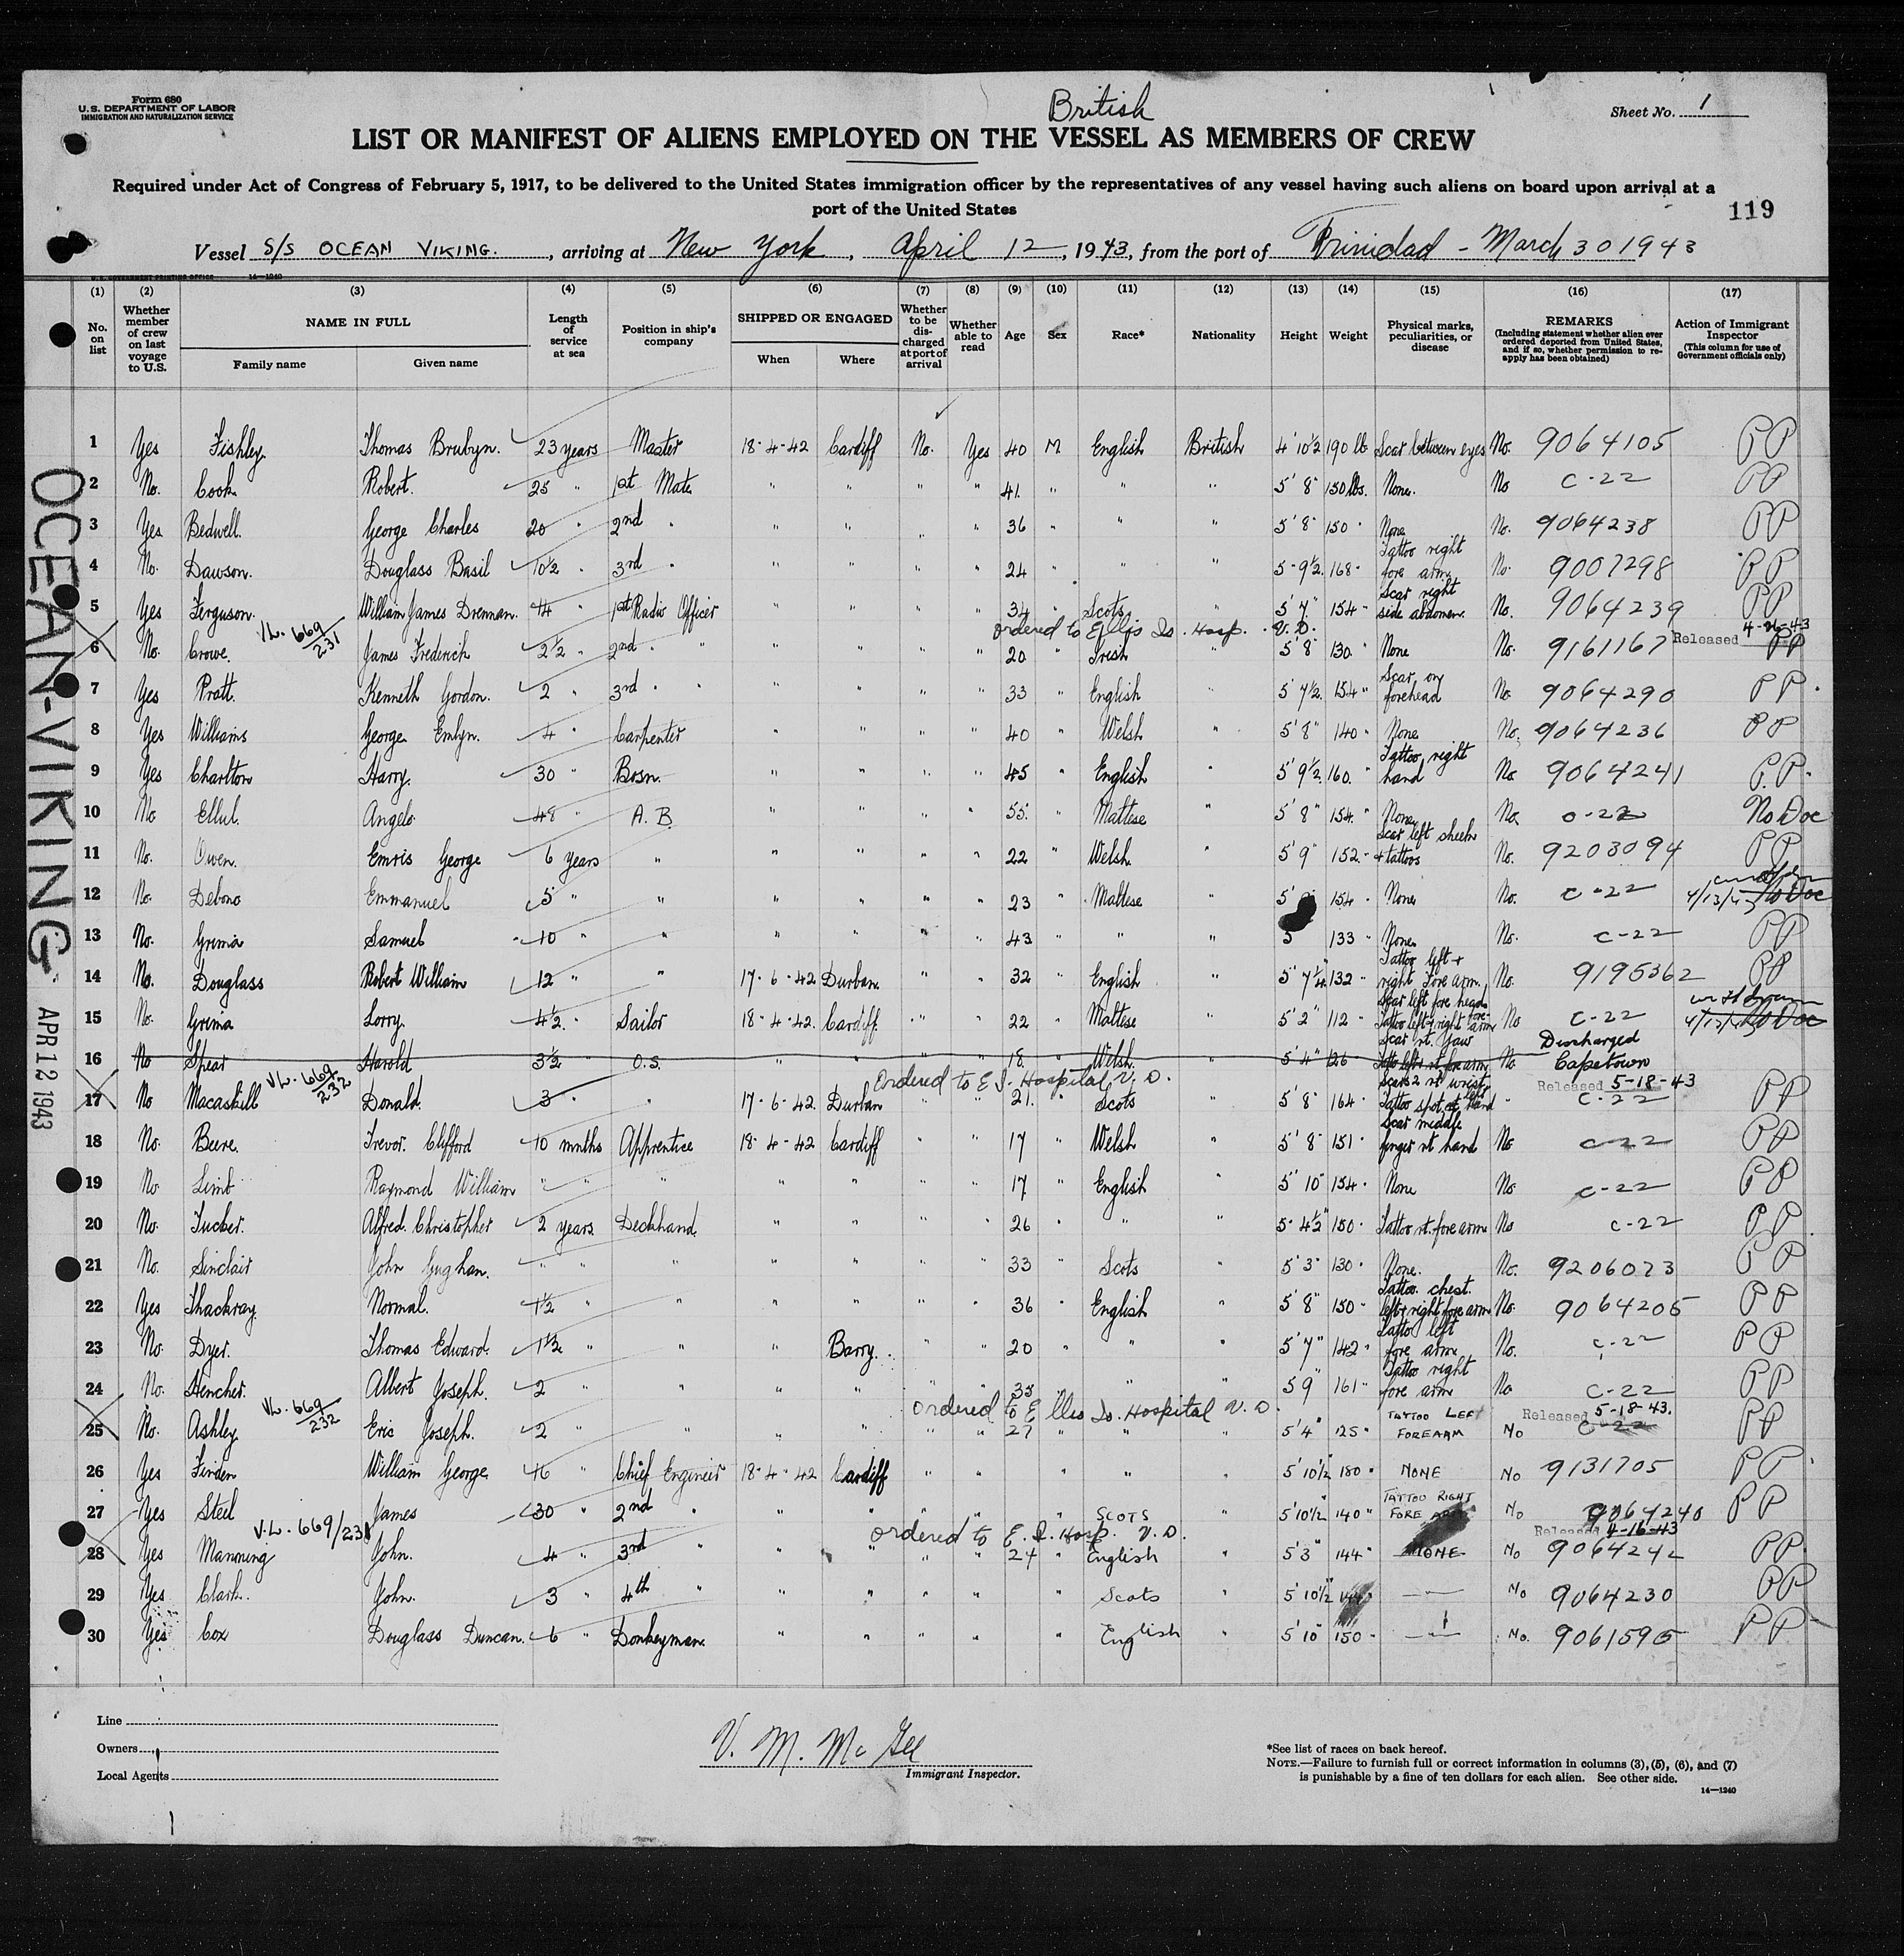 Form 680
U.S. DEPARTMENT OF LABOR
IMMIGRATION AND NATURALIZATION SERVICE
British
Sheet No. 1
LIST OR MANIFEST OF ALIENS EMPLOYED ON THE VESSEL AS MEMBERS OF CREW
Required under Act of Congress of February 5, 1917, to be delivered to the United States immigration officer by the representatives of any vessel having such aliens on board upon arrival at a
port of the United States
119
Vessel S/S OCEAN VIKING. , arriving at New York , April 12 , 1943, from the port of Trinidad - March 30 1943
U.S. GOVERNMENT PRINTING OFFICE 14—1240
(1) (2) (3) (4) (5) (6) (7) (8) (9) (10) (11) (12) (13) (14) (15) (16) (17)
No. on list
Whether member of crew on last voyage to U.S.
NAME IN FULL
Family name Given name
Length of service at sea
Position in ship's company
SHIPPED OR ENGAGED
When Where
Whether to be discharged at port of arrival
Whether able to read
Age Sex Race* Nationality Height Weight
Physical marks, peculiarities, or disease
REMARKS
(Including statement whether alien ever ordered deported from United States, and if so, whether permission to reapply has been obtained)
Action of Immigrant Inspector
(This column for use of Government officials only)
1 Yes Fishley Thomas Brubyn. 23 years Master 18-4-42 Cardiff No. Yes 40 M English British 4' 10½ 190 lb Scar between eyes No. 9064105 PP
2 No. Cook Robert. 25 " 1st Mate " " " " 41. " " " 5' 8" 150 lbs. None. No C-22 PP
3 Yes Bedwell. George Charles 20 " 2nd " " " " " 36 " " " 5' 8" 150 " None No. 9064238 PP
4 No. Dawson. Douglass Basil 10½ " 3rd " " " " " 24 " " " 5-9½ 168 " Tattoo right fore arm No. 9007298 PP
5 Yes Ferguson. William James Drennan. 14 " 1st Radio Officer " " " " 34 " Scots " 5' 7" 154 " Scar right side abdomen. No. 9064239 PP
V.L. 669/231 ordered to Ellis Is. Hosp. V.D. Released 4-26-43
6 No. Crowe. James Frederick 2½ " 2nd " " " " " " 20 " Irish " 5' 8" 130 " None No. 9161167 PP
7 Yes Pratt. Kenneth Gordon. 2 " 3rd " " " " " " 33 " English " 5' 7½ 154 " Scar on forehead No. 9064290 PP
8 Yes Williams George Emlyn. 4 " Carpenter " " " " 40 " Welsh " 5' 8" 140 " None No. 9064236 PP
9 Yes Charlton Harry. 30 " Bosn. " " " " 45 " English " 5' 9½ 160 " Tattoo right hand No 9064241 P.P.
10 No Ellul. Angelo 48 " A.B. " " " 55. " Maltese " 5' 8" 154 " None No. 0-22 No Doc
11 No. Owen. Emris George 6 years " " " " " 22 " Welsh " 5' 9" 152 " Scar left cheek + tattoos No. 9203094 PP
12 No. Debono Emmanuel 5 " " " " " " 23 " Maltese " 5' 154 " None No. C-22 4/13/43 No Doc
13 No. Grima Samuel 10 " " " " " " 43 " " " 5 133 " None No. C-22 PP
14 No. Douglass Robert William 12 " " 17-6-42 Durban " " 32 " English " 5' 7¼ 132 " Tattoo left + right Fore arm. No. 9195362 PP
15 No. Grima Lorry. 4½ " Sailor 18-4-42. Cardiff " " 22 " Maltese " 5' 2" 112 " Scar left fore head Tattoo left + right fore arm No C-22 4/13/43 No Doc
16 No Spear Harold 3½ " O.S. " " " " 18. " Welsh " 5' 4" 126 Scar rt. Jaw Tatto left + rt. fore arm No. Discharged Capetown
V.L. 669/232 Ordered to E I. Hospital V.D. Released 5-18-43
17 No Macaskill Donald. 3 " " 17-6-42. Durban 21. " Scots " 5' 8" 164 " Scars 2 rt wrist Tattoo spot left Hand " C-22 PP
18 No. Beere. Trevor Clifford 10 mnths Apprentice 18-4-42 Cardiff " " 17 " Welsh " 5' 8" 151 " Scar middle finger rt hand No C-22 PP
19 No. Raymond William " " " " " " 17 " English " 5' 10" 154 " None No C-22 PP
20 No. Tucker. Alfred Christopher 2 years Deckhand. " " " " 26 " " " 5-4½" 150 " Tattoo rt. fore arm No C-22 PP
21 No. Sinclair John Gughan. " " " " " " " 33 " Scots " 5' 3" 130 " None. No. 9206073 PP
22 Yes Thackray. Normal. 1½ " " " " " " 36 " English " 5' 8" 150 " Tattoo chest. left + right fore arm No. 9064205 PP
23 No. Dyer. Thomas Edward. 1½ " " " Barry. " " 20 " " " 5' 7" 142 " Tattoo left fore arm No. C-22 PP
24 No. Hencher. Albert Joseph. 2 " " " " " " 35 " " " 5 9" 161 " Tattoo right fore arm No C-22 PP
V.L. 669/232 Ordered to Ellis Is. Hospital V.D. Released 5-18-43.
25 No. Ashley Eric Joseph. 2 " " " " " " 27 " " " 5' 4" 125 " TATTOO LEFT FOREARM No C-22 PP
26 Yes William George 16 " Chief Engineer 18-4-42 Cardiff " " " " " 5' 10½ 180 " NONE No 9131705 PP
27 Yes Steel James 30 " 2nd " " " " " " SCOTS " 5' 10½ 140 " TATTOO RIGHT FORE ARM No 9064240 PP
V.L. 669/231 Ordered to E. I. Hosp. V.D. Released 4-16-43
28 Yes Manning John. 4 " 3rd " " " " " 24 " English " 5' 3" 144 " NONE No 9064242 PP
29 Yes Clark. John. 3 " 4th " " " " " " Scots " 5' 10½ — No 9064230 PP
30 Yes Cox Douglass Duncan. 6 " Donkeyman. " " " " " English " 5' 10" 150 " — No. 9061595 PP
OCEAN-VIKING
APR 12 1943
Line
Owners
Local Agents
V. M. McGee
Immigrant Inspector.
*See list of races on back hereof.
NOTE.—Failure to furnish full or correct information in columns (3), (5), (6), and (7)
is punishable by a fine of ten dollars for each alien. See other side.
14—1240